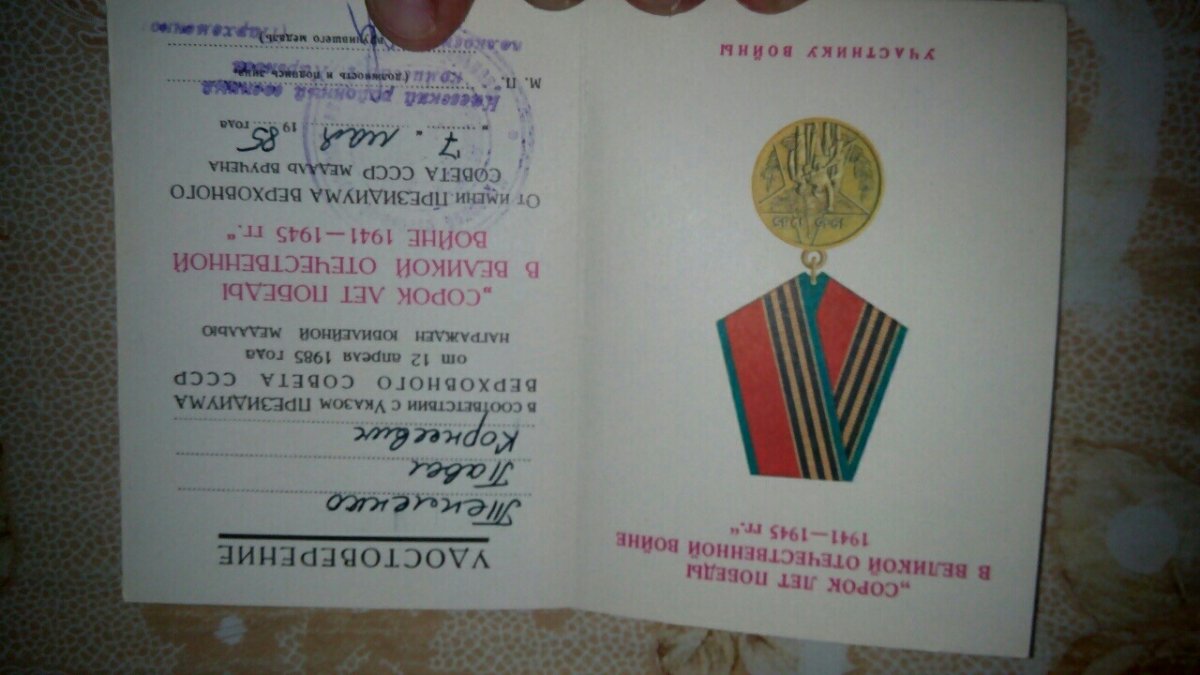 „СОРОК ЛЕТ ПОБЕДЫ
В ВЕЛИКОЙ ОТЕЧЕСТВЕННОЙ ВОЙНЕ
1941—1945 гг.“
1945 1985
УЧАСТНИКУ ВОЙНЫ
УДОСТОВЕРЕНИЕ
Павел
Корнеевич
В СООТВЕТСТВИИ С УКАЗОМ ПРЕЗИДИУМА
ВЕРХОВНОГО СОВЕТА СССР
от 12 апреля 1985 года
НАГРАЖДЕН ЮБИЛЕЙНОЙ МЕДАЛЬЮ
„СОРОК ЛЕТ ПОБЕДЫ
В ВЕЛИКОЙ ОТЕЧЕСТВЕННОЙ
ВОЙНЕ 1941—1945 гг.“
ОТ ИМЕНИ ПРЕЗИДИУМА ВЕРХОВНОГО
СОВЕТА СССР МЕДАЛЬ ВРУЧЕНА
„7“ мая 1985 года
районный военный
М. П. (должность и подпись лица,
вручившего медаль)